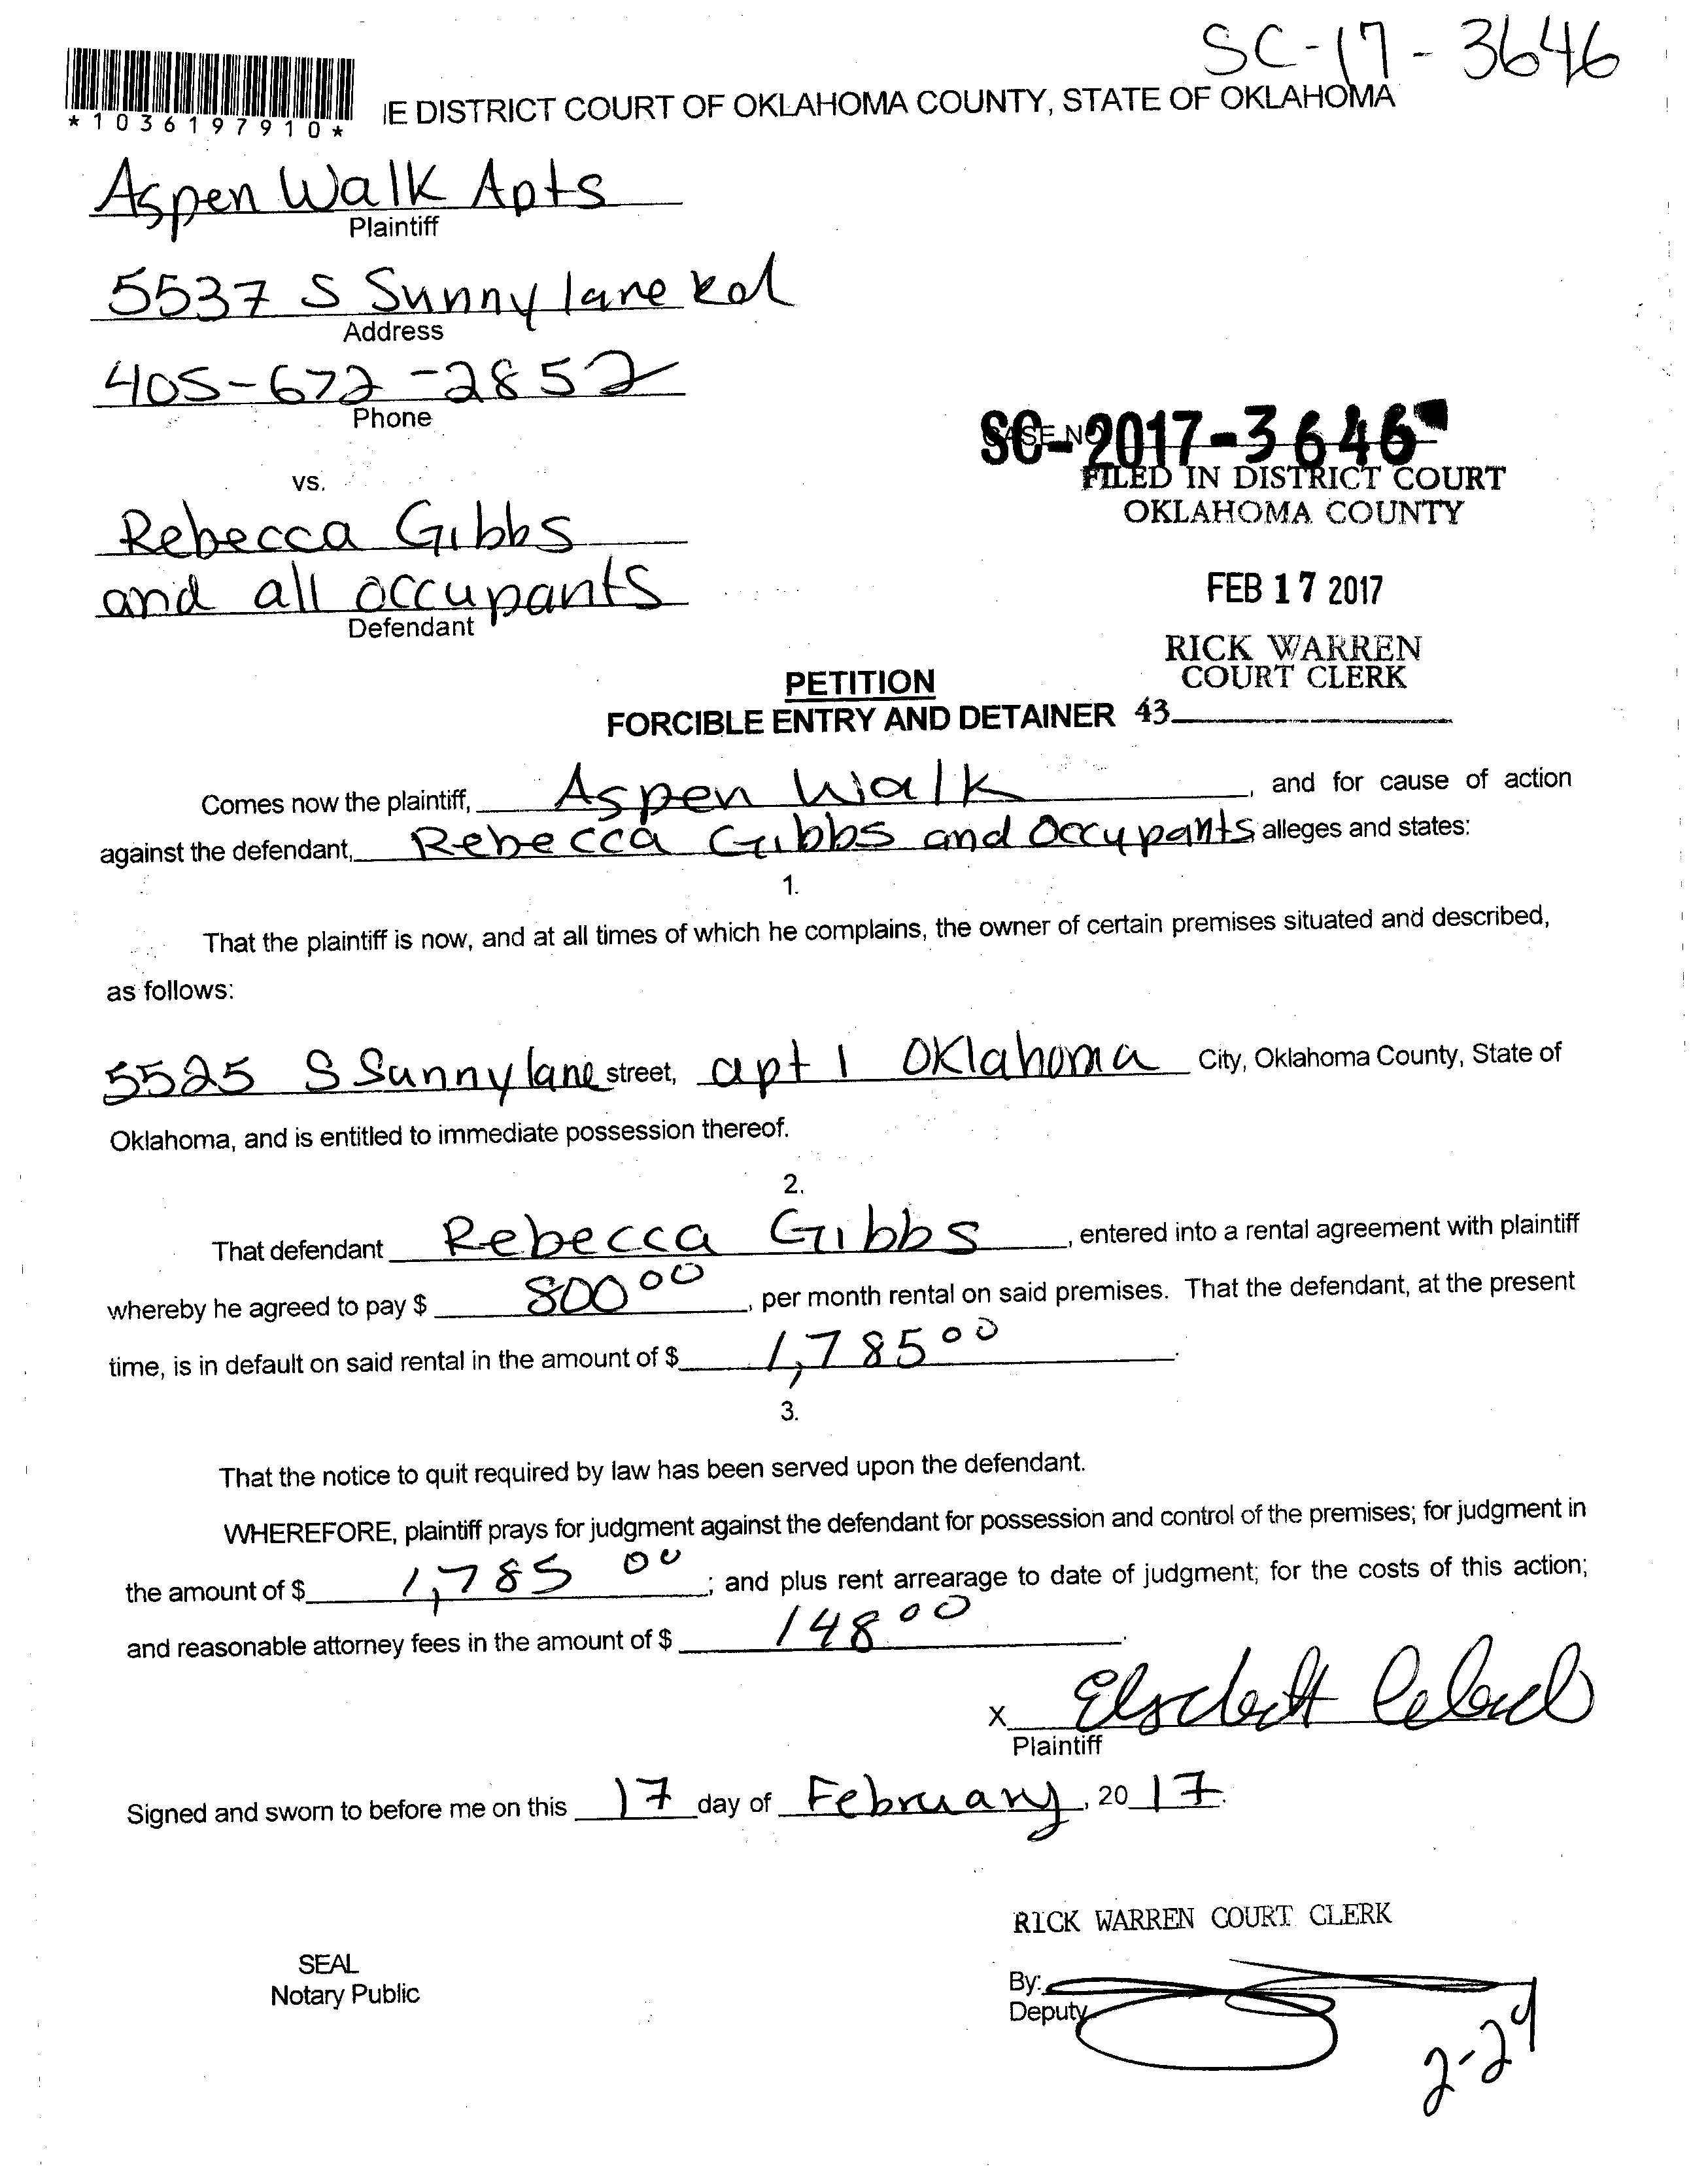 SC-17-3646
*1036197910*
IE DISTRICT COURT OF OKLAHOMA COUNTY, STATE OF OKLAHOMA
Aspen Walk Apts
Plaintiff
5537 S Sunnylane Rd
Address
405-672-2852
Phone
SC-2017-3646
CASE NO
FILED IN DISTRICT COURT
OKLAHOMA COUNTY
vs.
Rebecca Gibbs
and all occupants
Defendant
FEB 17 2017
RICK WARREN
COURT CLERK
PETITION
FORCIBLE ENTRY AND DETAINER 43
Comes now the plaintiff, Aspen Walk, and for cause of action
against the defendant, Rebecca Gibbs and Occupants alleges and states:
1.
That the plaintiff is now, and at all times of which he complains, the owner of certain premises situated and described,
as follows:
5525 S Sunnylane street, apt 1 Oklahoma City, Oklahoma County, State of
Oklahoma, and is entitled to immediate possession thereof.
2.
That defendant Rebecca Gibbs, entered into a rental agreement with plaintiff
whereby he agreed to pay $ 800 00, per month rental on said premises. That the defendant, at the present
time, is in default on said rental in the amount of $ 1,785 00.
3.
That the notice to quit required by law has been served upon the defendant.
WHEREFORE, plaintiff prays for judgment against the defendant for possession and control of the premises; for judgment in
the amount of $ 1,785 00; and plus rent arrearage to date of judgment; for the costs of this action;
and reasonable attorney fees in the amount of $ 148 00.
X
Plaintiff
Signed and sworn to before me on this 17 day of February, 20 17.
RICK WARREN COURT CLERK
SEAL
Notary Public
By:
Deputy
2-24